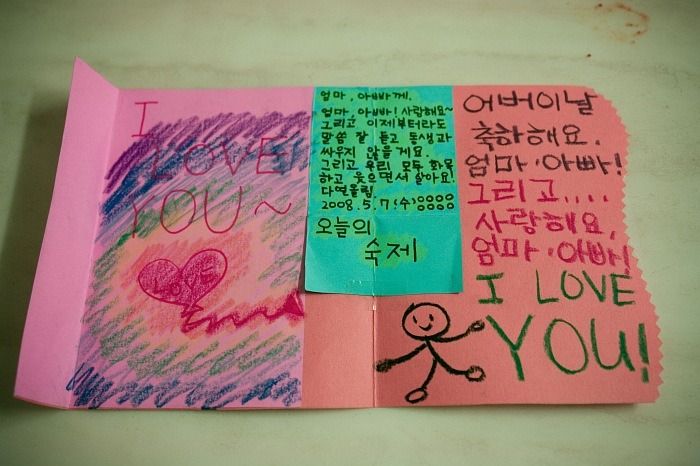 I
LOVE
YOU~
LOVE
엄마, 아빠께.
엄마, 아빠! 사랑해요~
그리고, 이제부터라도
말씀 잘 듣고 동생과
싸우지 않을게요.
그리고 우리 모두 화목
하고 웃으면서 살아요!
다연올림.
2008.5.7(수)
오늘의
숙제
어버이날
축하해요.
엄마·아빠!
그리고....
사랑해요,
엄마·아빠!
I LOVE
YOU!